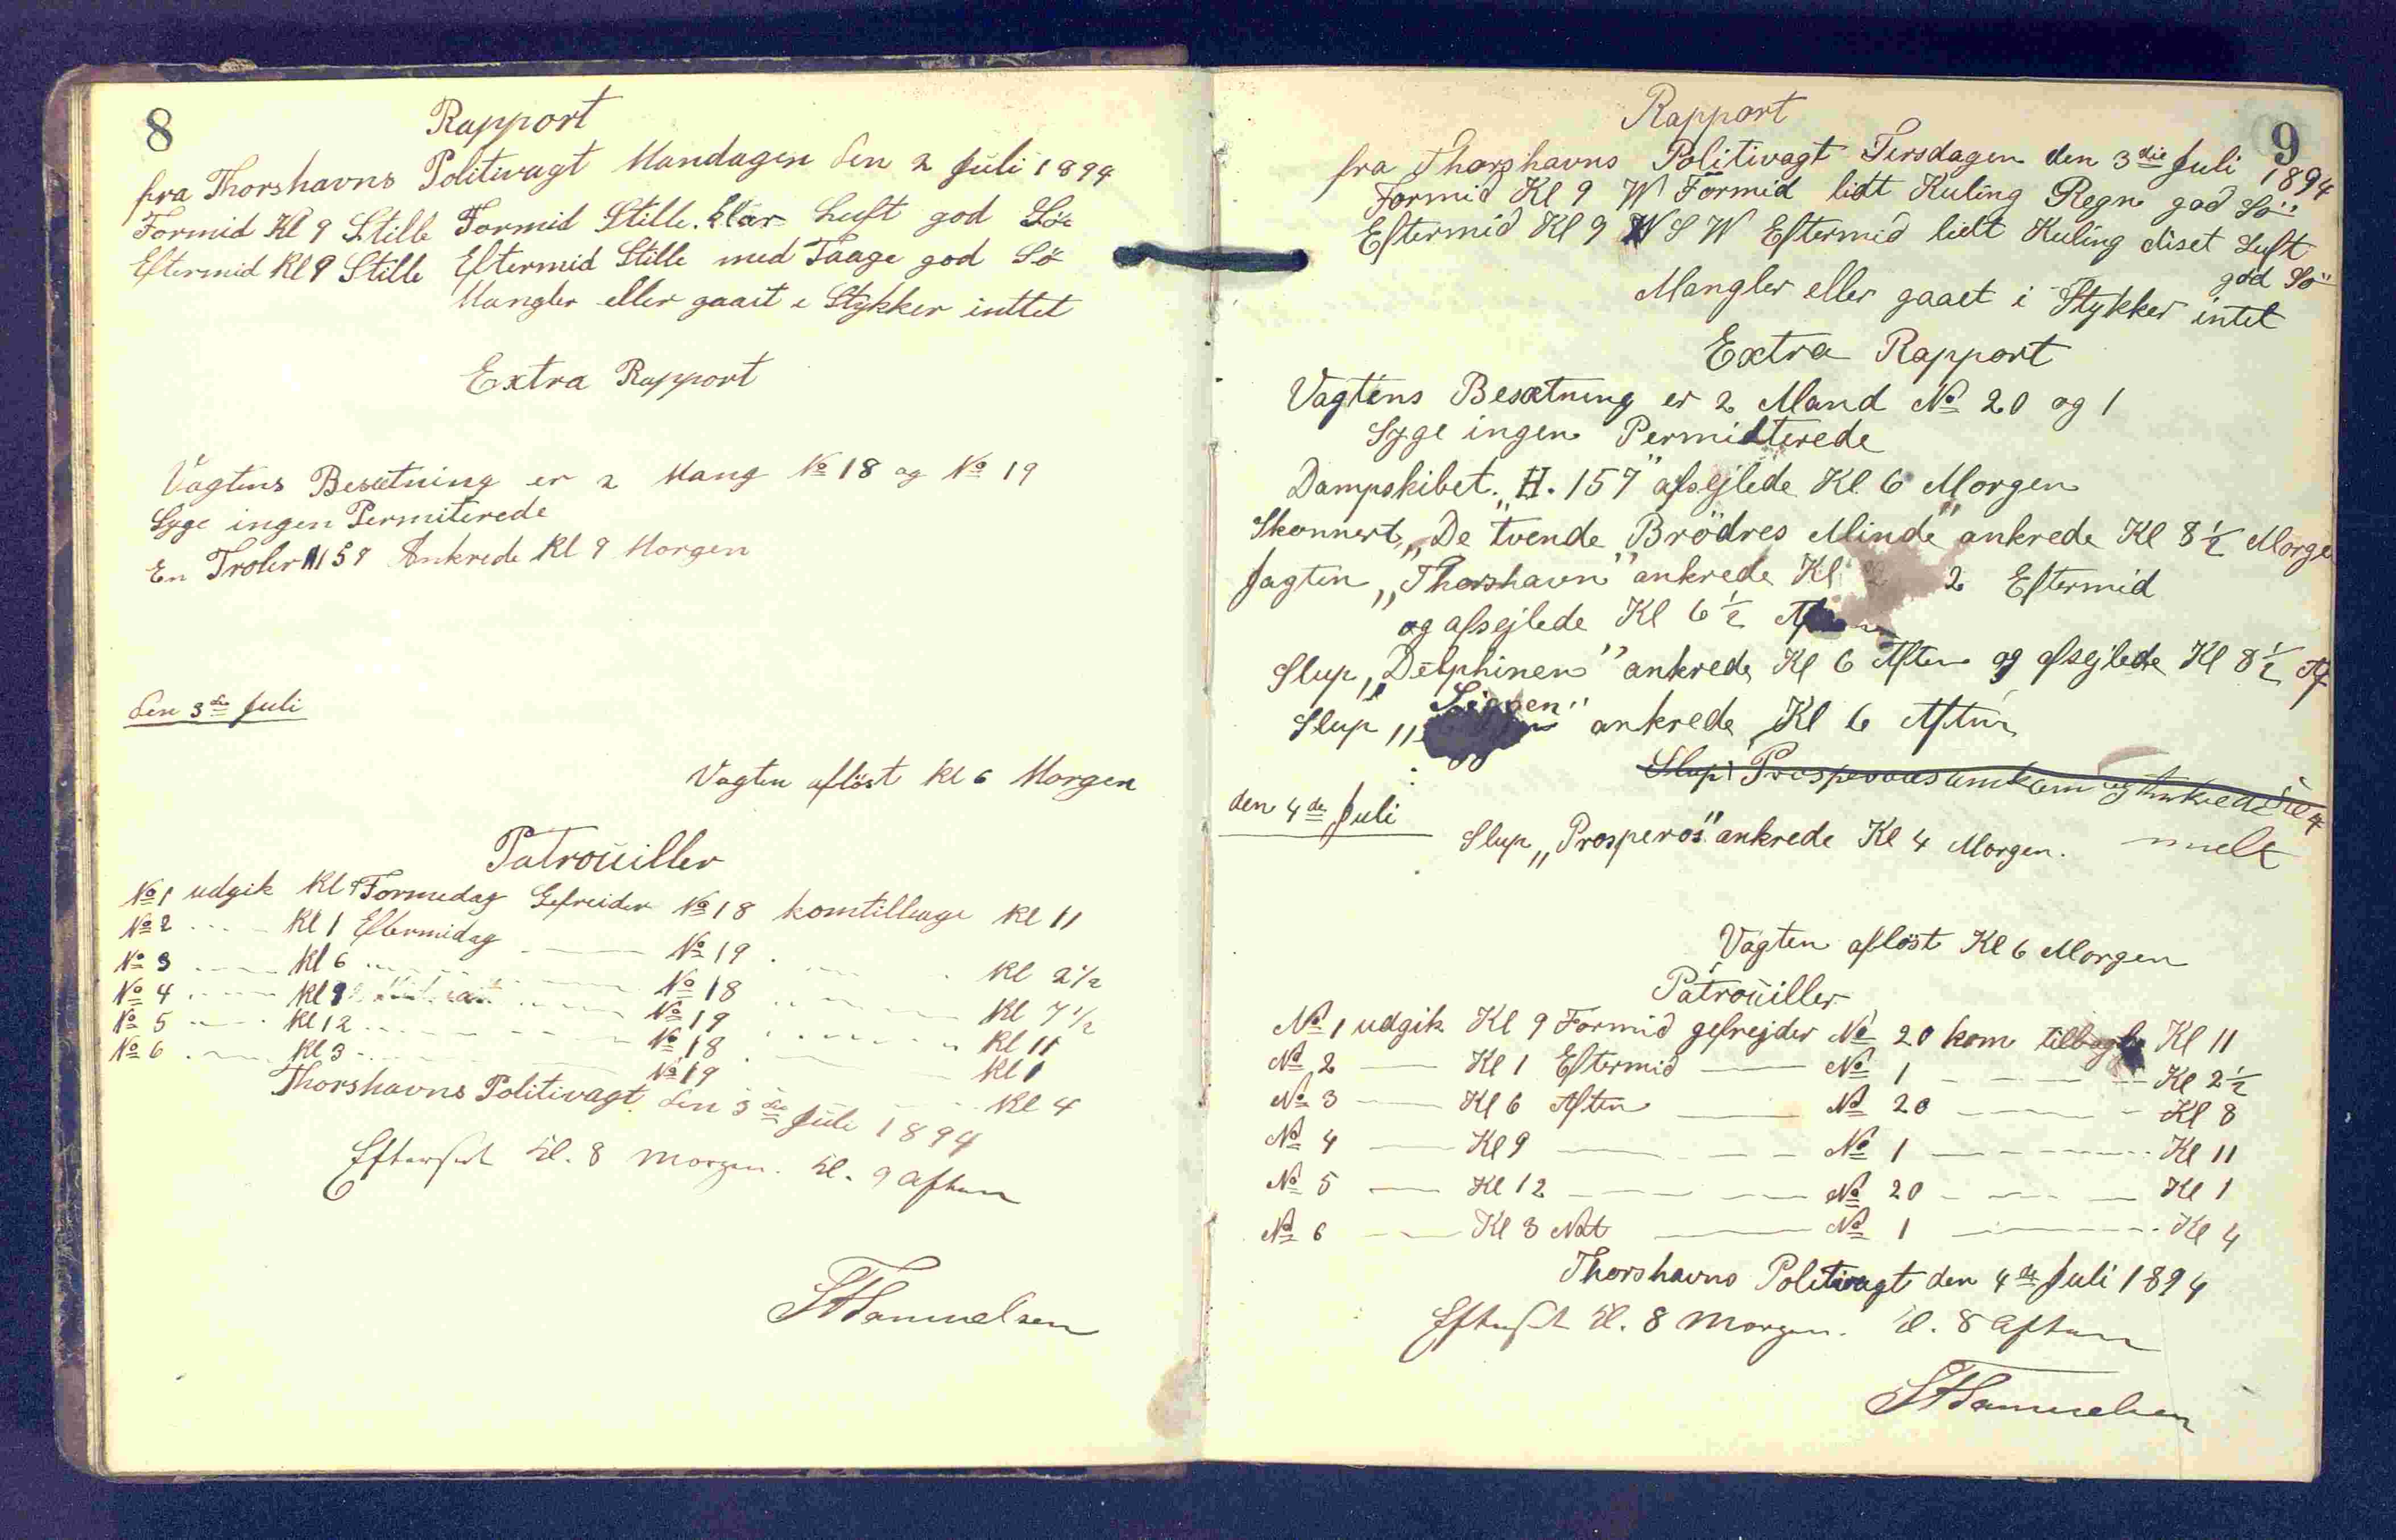 8
Rapport
fra Thorshavns Politivagt Mandagen den 2 Juli 1894
Formid Kl 9 Stille Formid Stille. klar Luft god Sö
Eftermid Kl 9 Stille Eftermid Stille med Taage god Sö
Mangler eller gaait i Stykker inttet
Extra Rapport
Vagtens Besætning er 2 Mang No 18 og No 19
Syge ingen Permiterede
En Troler 159 Ankrede Kl 9 Morgen
den 3die Juli
Vagten aflöst Kl 6 Morgen
Patrouiller
No 1 udgik Kl 9 Formedag Gefreider No 18 komtilbage Kl 11
No 2 Kl 1 Eftermidag No 19 Kl 2 1/2
No 3 Kl 6 No 18 Kl 7 1/2
No 4 Kl 9 No 19 Kl 11
No 5 Kl 12 No 18 Kl 1
No 6 Kl 3 No 19 Kl 4
Thorshavns Politivagt den 3die Juli 1894
Efterset Kl. 8 Morgen. Kl. 9 Aften
Samuelsen
9
Rapport
fra Thorshavns Politivagt Tirsdagen den 3die Juli 1894
Formid Kl 9 W Formid lidt Kuling Regn god Sö
Eftermid Kl 9 W S W Eftermid lidt Kuling diset Luft
god Sö
Mangler eller gaaet i Stykker intet
Extra Rapport
Vagtens Besætning er 2 Mand No 20 og 1
Syge ingen Permitterede
Dampskibet „H. 157" afsejlede Kl 6 Morgen
Skonnert „De tvende Brödres Minde" ankrede Kl 8 1/2 Morge
Jagten „Thorshavn" ankrede Kl 2 Eftermid
og afsejlede Kl 6 1/2
Slup „Delphinen" ankrede Kl 6 Aften og afsejlede Kl 8 1/2 Af
Slup „ Siggen" ankrede Kl 6 Aften
Slup Prosperoos ankom og Ankrede Kl 4
den 4de Juli
Slup „Prosperos" ankrede Kl 4 Morgen.
Vagten aflöst Kl 6 Morgen
Patrouiller
No 1 udgik Kl 9 Formid gefrejder No 20 kom tilbage Kl 11
No 2 Kl 1 Eftermid No 1 Kl 2 1/2
No 3 Kl 6 Aften No 20 Kl 8
No 4 Kl 9 No 1 Kl 11
No 5 Kl 12 No 20 Kl 1
No 6 Kl 3 Nat No 1 Kl 4
Thorshavns Politivagt den 4de Juli 1894
Efterset Kl. 8 Morgen. Kl. 8 Aften
Samuelsen